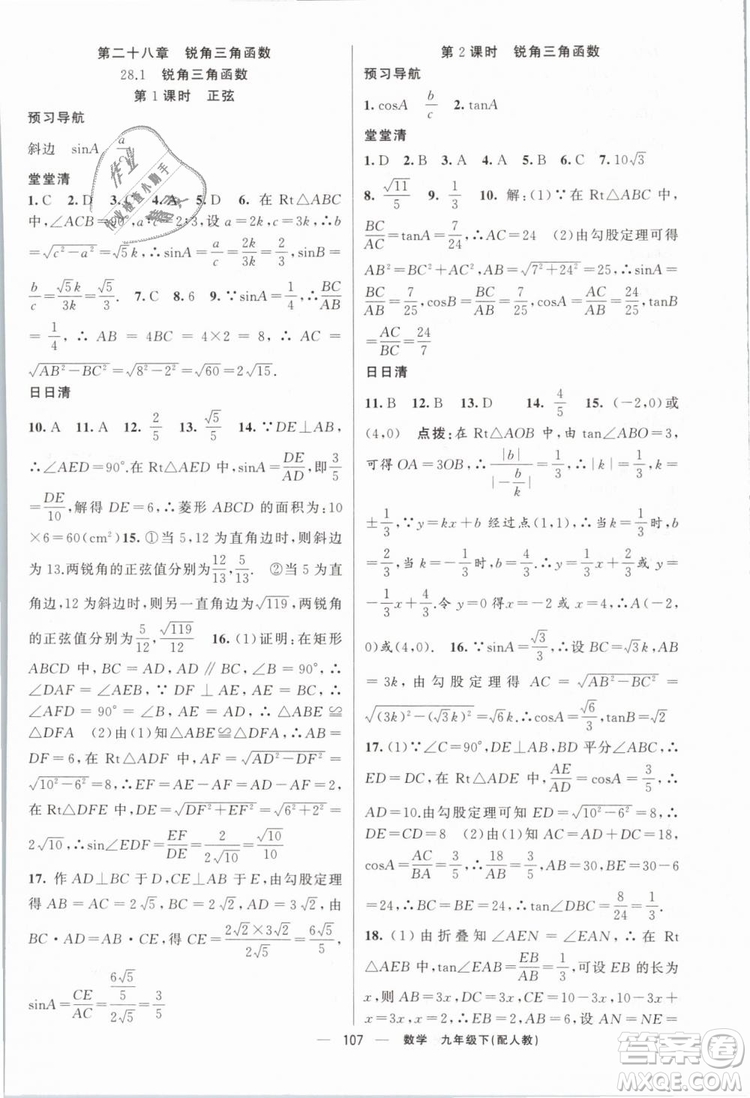 第二十八章　锐角三角函数
28.1　锐角三角函数
第1课时　正弦
预习导航
斜边　sinA　a
堂堂清
1. C　2. D　3. C　4. A　5. D　6. 在 Rt△ABC
中,∠ACB=90°,a:c=2:3,设 a=2k,c=3k,∴b
=√(c²-a²)=√5k,∴sinA=a/c=2k/3k=2/3,sinB=
b/c=√5k/3k=√5/3.　7. C　8. 6　9. ∵sinA=1/4,∴BC/AB=
1/4,∴AB=4BC=4×2=8,∴AC=
√(AB²-BC²)=√(8²-2²)=√60=2√15.
日日清
10. A　11. A　12. 2/5　13. √5/5　14. ∵DE⊥AB,
∴∠AED=90°.在 Rt△AED 中,sinA=DE/AD,即3/5
=DE/10,解得 DE=6,∴菱形 ABCD 的面积为:10
×6=60(cm²)　15. ①当5,12为直角边时,则斜边
为13.两锐角的正弦值分别为12/13,5/13;②当5为直
角边,12为斜边时,则另一直角边为√119,两锐角
的正弦值分别为5/12,√119/12　16. (1)证明:在矩形
ABCD 中,BC=AD,AD∥BC,∠B=90°,∴
∠DAF=∠AEB.∵DF⊥AE,AE=BC,∴
∠AFD=90°=∠B,AE=AD,∴△ABE≌
△DFA　(2)由(1)知△ABE≌△DFA,∴AB
=DF=6.在 Rt△ADF 中,AF=√(AD²-DF²)=
√(10²-6²)=8,∴EF=AE-AF=AD-AF=2.
在 Rt△DFE 中,DE=√(DF²+EF²)=√(6²+2²)=
2√10,∴sin∠EDF=EF/DE=2/(2√10)=√10/10
17. 作 AD⊥BC 于 D,CE⊥AB 于 E,由勾股定理
得 AB=AC=2√5,BC=2√2,AD=3√2,由
BC·AD=AB·CE,得 CE=(2√2×3√2)/(2√5)=6√5/5,
sinA=CE/AC=(6√5/5)/(2√5)=3/5
第2课时　锐角三角函数
预习导航
1. cosA　b/c　2. tanA
堂堂清
1. D　2. A　3. D　4. B　5. C　6. C　7. 10√3
8. √11/5　9. 4/5　10. 解:(1)∵在 Rt△ABC 中,
BC/AC=tanA=7/24,∴AC=24　(2)由勾股定理可得
AB²=BC²+AC²,∴AB=√(7²+24²)=25,∴sinB
=AC/AB=24/25,cosB=BC/AB=7/25,tanB
=AC/BC=24/7
日日清
11. B　12. B　13. D　14. 4/5　15. (-2,0)或
(4,0)　点拨:在 Rt△AOB 中,由 tan∠ABO=3,
可得 OA=3OB,∴|b|/|-b/k|=3,∴|k|=3,∴k=
±1/3,∵y=kx+b 经过点(1,1),∴当 k=1/3时,b
=2/3;当 k=-1/3时,b=4/3,∴y=1/3x+2/3或 y=
-1/3x+4/3.令 y=0,则 x=-2或4,∴A(-2,
0)或(4,0).　16. ∵sinA=√3/3,∴设 BC=√3k,AB
=3k,由勾股定理得 AC=√(AB²-BC²)=
√((3k)²-(√3k)²)=√6k,∴cosA=√6/3,∴tanB=√2
17. (1)∵∠C=90°,DE⊥AB,BD 平分∠ABC,∴
CD=DE.在 Rt△ADE 中,AE/AD=cosA=3/5,∴
AD=10.由勾股定理知 DE=√(10²-6²)=8,∴
CD=DE=8　(2)由(1)知 AC=AD+DC=18,
cosA=AC/BA=3/5,∴AB=30,BE=AB-AE=30
-6=24,∴BC=BE=24,∴tan∠DBC=8/24=1/3
18. (1)由折叠知∠AEN=∠EAN,∴在 Rt
△AEB 中,tan∠AEN=EB/AB=1/3,可设 BE 的长为
x,则 AB=3x,设 AN=NE=a,∴AN=NE=
107　数学　九年级下(配人教)
作业
作业检查小助手
精灵
答案圈
MXQE.COM